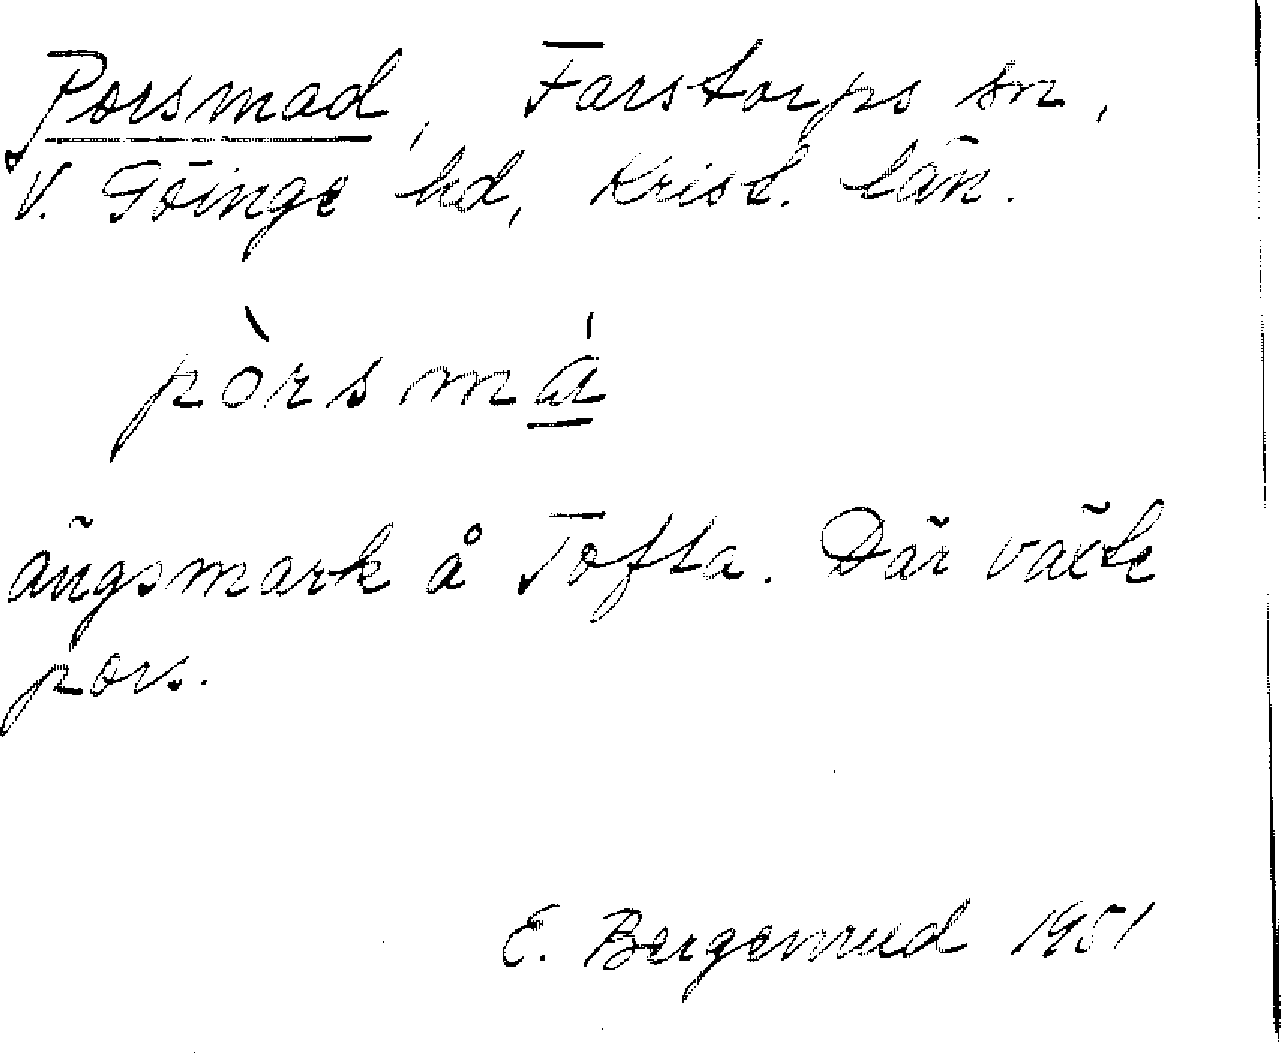 Porsmad, Farstorps sn,
V. Göinge hd, Krist. län.
pòrsmá
ängsmark å Tofta. Där växte
pors.
E. Bergenrud 1951